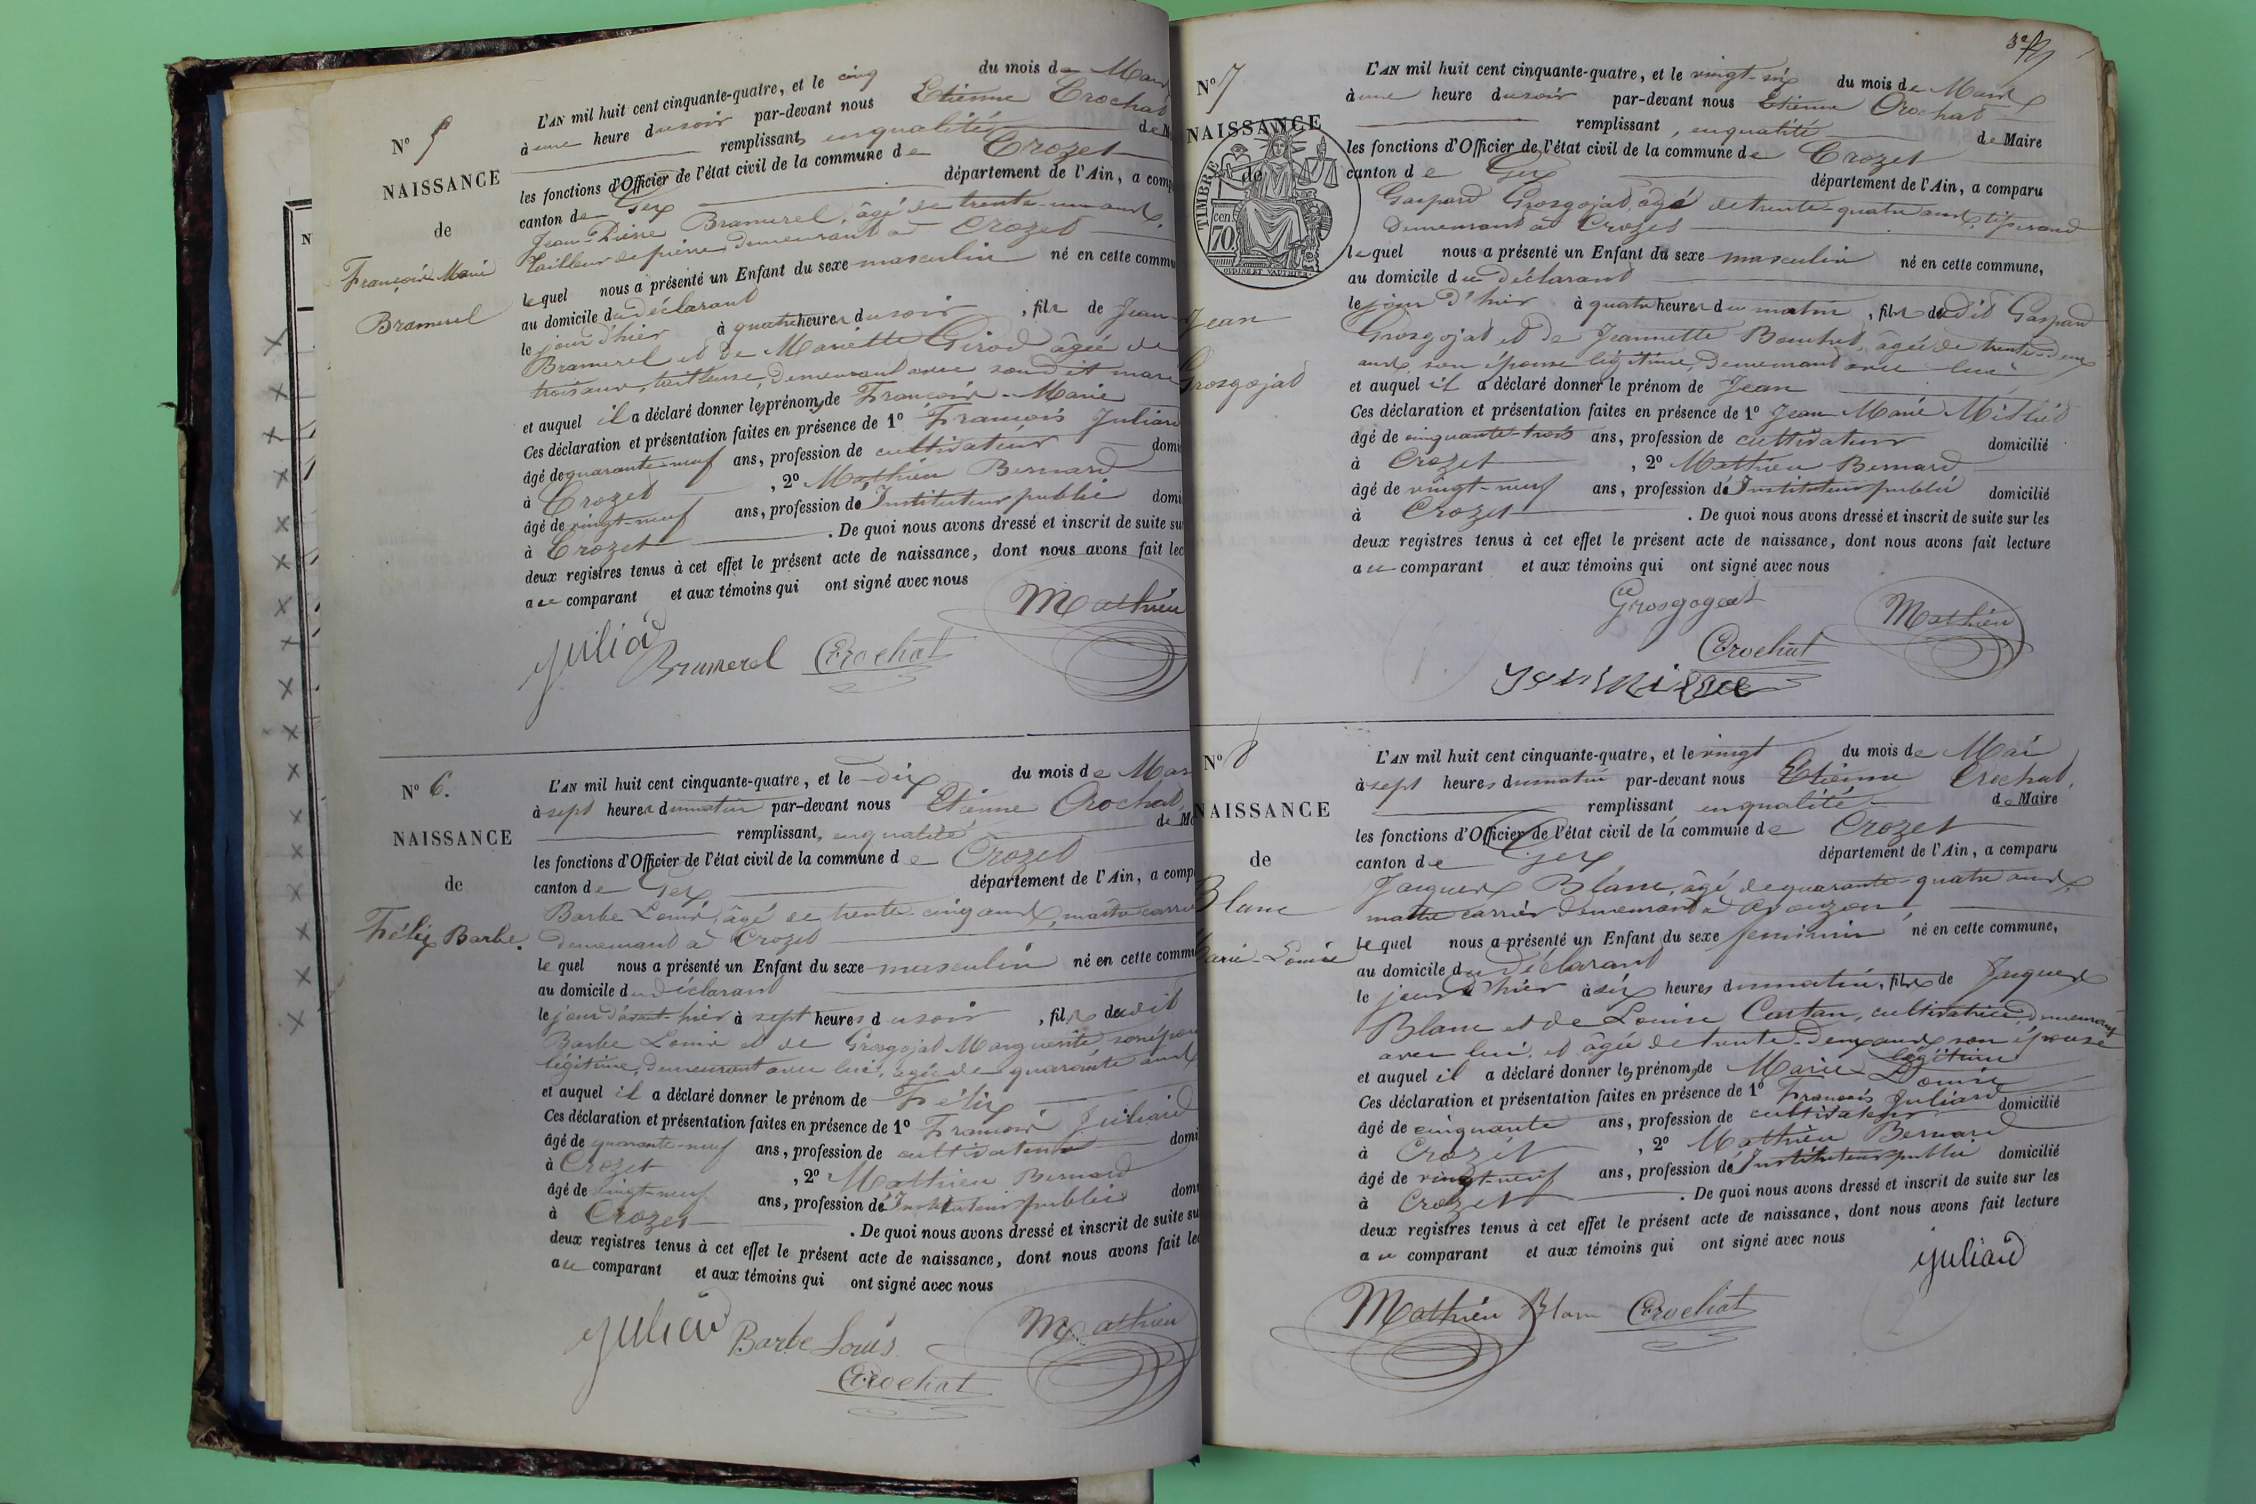 N° 5
NAISSANCE
de
François Marie
Bramerel
L'AN mil huit cent cinquante-quatre, et le cinq du mois de Mars
à une heure du soir par-devant nous Etienne Crochat
remplissant, en qualité de M
les fonctions d'Officier de l'état civil de la commune de Crozet
canton de Gex département de l'Ain, a comp
Jean-Pierre Bramerel, âgé de trente-un ans,
tailleur de pierre demeurant à Crozet
lequel nous a présenté un Enfant du sexe masculin né en cette commu
au domicile du déclarant
le jour d'hier à quatre heures du soir, fils de Jean
Bramerel et de Mariette Girod âgée de
trois ans, tailleuse, demeurant avec son dit mari
et auquel il a déclaré donner les prénoms de François-Marie
Ces déclaration et présentation faites en présence de 1° François Juliard
âgé de quarante-neuf ans, profession de cultivateur domi
à Crozet, 2° Mathieu Bernard
âgé de vingt-neuf ans, profession de Instituteur public domi
à Crozet. De quoi nous avons dressé et inscrit de suite su
deux registres tenus à cet effet le présent acte de naissance, dont nous avons fait lec
au comparant et aux témoins qui ont signé avec nous
Mathieu
Juliard Bramerel Crochat
N° 6.
NAISSANCE
de
Félix Barbe.
L'AN mil huit cent cinquante-quatre, et le dix du mois de Mar
à sept heures du matin par-devant nous Etienne Crochat,
remplissant, en qualité de Ma
les fonctions d'Officier de l'état civil de la commune de Crozet
canton de Gex département de l'Ain, a comp
Barbe Louis, âgé de trente-cinq ans, maître carrie
demeurant à Crozet
lequel nous a présenté un Enfant du sexe masculin né en cette commu
au domicile du déclarant
le jour d'avant-hier à sept heures du soir, fils dudit
Barbe Louis et de Grosgojat Marguerite son épou
légitime, demeurant avec lui, âgée de quarante ans
et auquel il a déclaré donner le prénom de Félix
Ces déclaration et présentation faites en présence de 1° François Juliard
âgé de quarante-neuf ans, profession de cultivateur domi
à Crozet, 2° Mathieu Bernard
âgé de vingt-neuf ans, profession de Instituteur public domi
à Crozet. De quoi nous avons dressé et inscrit de suite su
deux registres tenus à cet effet le présent acte de naissance, dont nous avons fait le
au comparant et aux témoins qui ont signé avec nous
Juliard Barbe Louis Mathieu
Crochat
N° 7
NAISSANCE
de
TIMBRE
70 cen
Jean
Grosgojat
L'AN mil huit cent cinquante-quatre, et le vingt-six du mois de Mars
à une heure du soir par-devant nous Etienne Crochat
remplissant, en qualité de Maire
les fonctions d'Officier de l'état civil de la commune de Crozet
canton de Gex département de l'Ain, a comparu
Gaspard Grosgojat, âgé de trente-quatre ans, tisserand
demeurant à Crozet
lequel nous a présenté un Enfant du sexe masculin né en cette commune,
au domicile du déclarant
le jour d'hier à quatre heures du matin, fils dudit Gaspard
Grosgojat et de Jeannette Bouchet, âgée de trente-deux
ans, son épouse légitime, demeurant avec lui
et auquel il a déclaré donner le prénom de Jean
Ces déclaration et présentation faites en présence de 1° Jean Marie
âgé de cinquante-trois ans, profession de cultivateur domicilié
à Crozet, 2° Mathieu Bernard
âgé de vingt-neuf ans, profession de Instituteur public domicilié
à Crozet. De quoi nous avons dressé et inscrit de suite sur les
deux registres tenus à cet effet le présent acte de naissance, dont nous avons fait lecture
au comparant et aux témoins qui ont signé avec nous
Grosgogeat Mathieu
Crochat
N° 8
NAISSANCE
de
Blanc
Marie-Louise
L'AN mil huit cent cinquante-quatre, et le vingt du mois de Mai
à sept heures du matin par-devant nous Etienne Crochat,
remplissant en qualité de Maire
les fonctions d'Officier de l'état civil de la commune de Crozet
canton de Gex département de l'Ain, a comparu
Jacques Blanc, âgé de quarante-quatre ans,
maître carrier demeurant à Avouzon
lequel nous a présenté un Enfant du sexe feminin né en cette commune,
au domicile du déclarant
le jour d'hier à six heures du matin, fille de Jacques
Blanc et de Louise Castan, cultivatrice, demeurant
avec lui, et âgée de trente-deux ans son épouse
légitime
et auquel il a déclaré donner les prénoms de Marie Louise
Ces déclaration et présentation faites en présence de 1° François Juliard
âgé de cinquante ans, profession de cultivateur domicilié
à Crozet, 2° Mathieu Bernard
âgé de vingt-neuf ans, profession de Instituteur public domicilié
à Crozet. De quoi nous avons dressé et inscrit de suite sur les
deux registres tenus à cet effet le présent acte de naissance, dont nous avons fait lecture
au comparant et aux témoins qui ont signé avec nous
Juliard
Mathieu Blanc Crochat